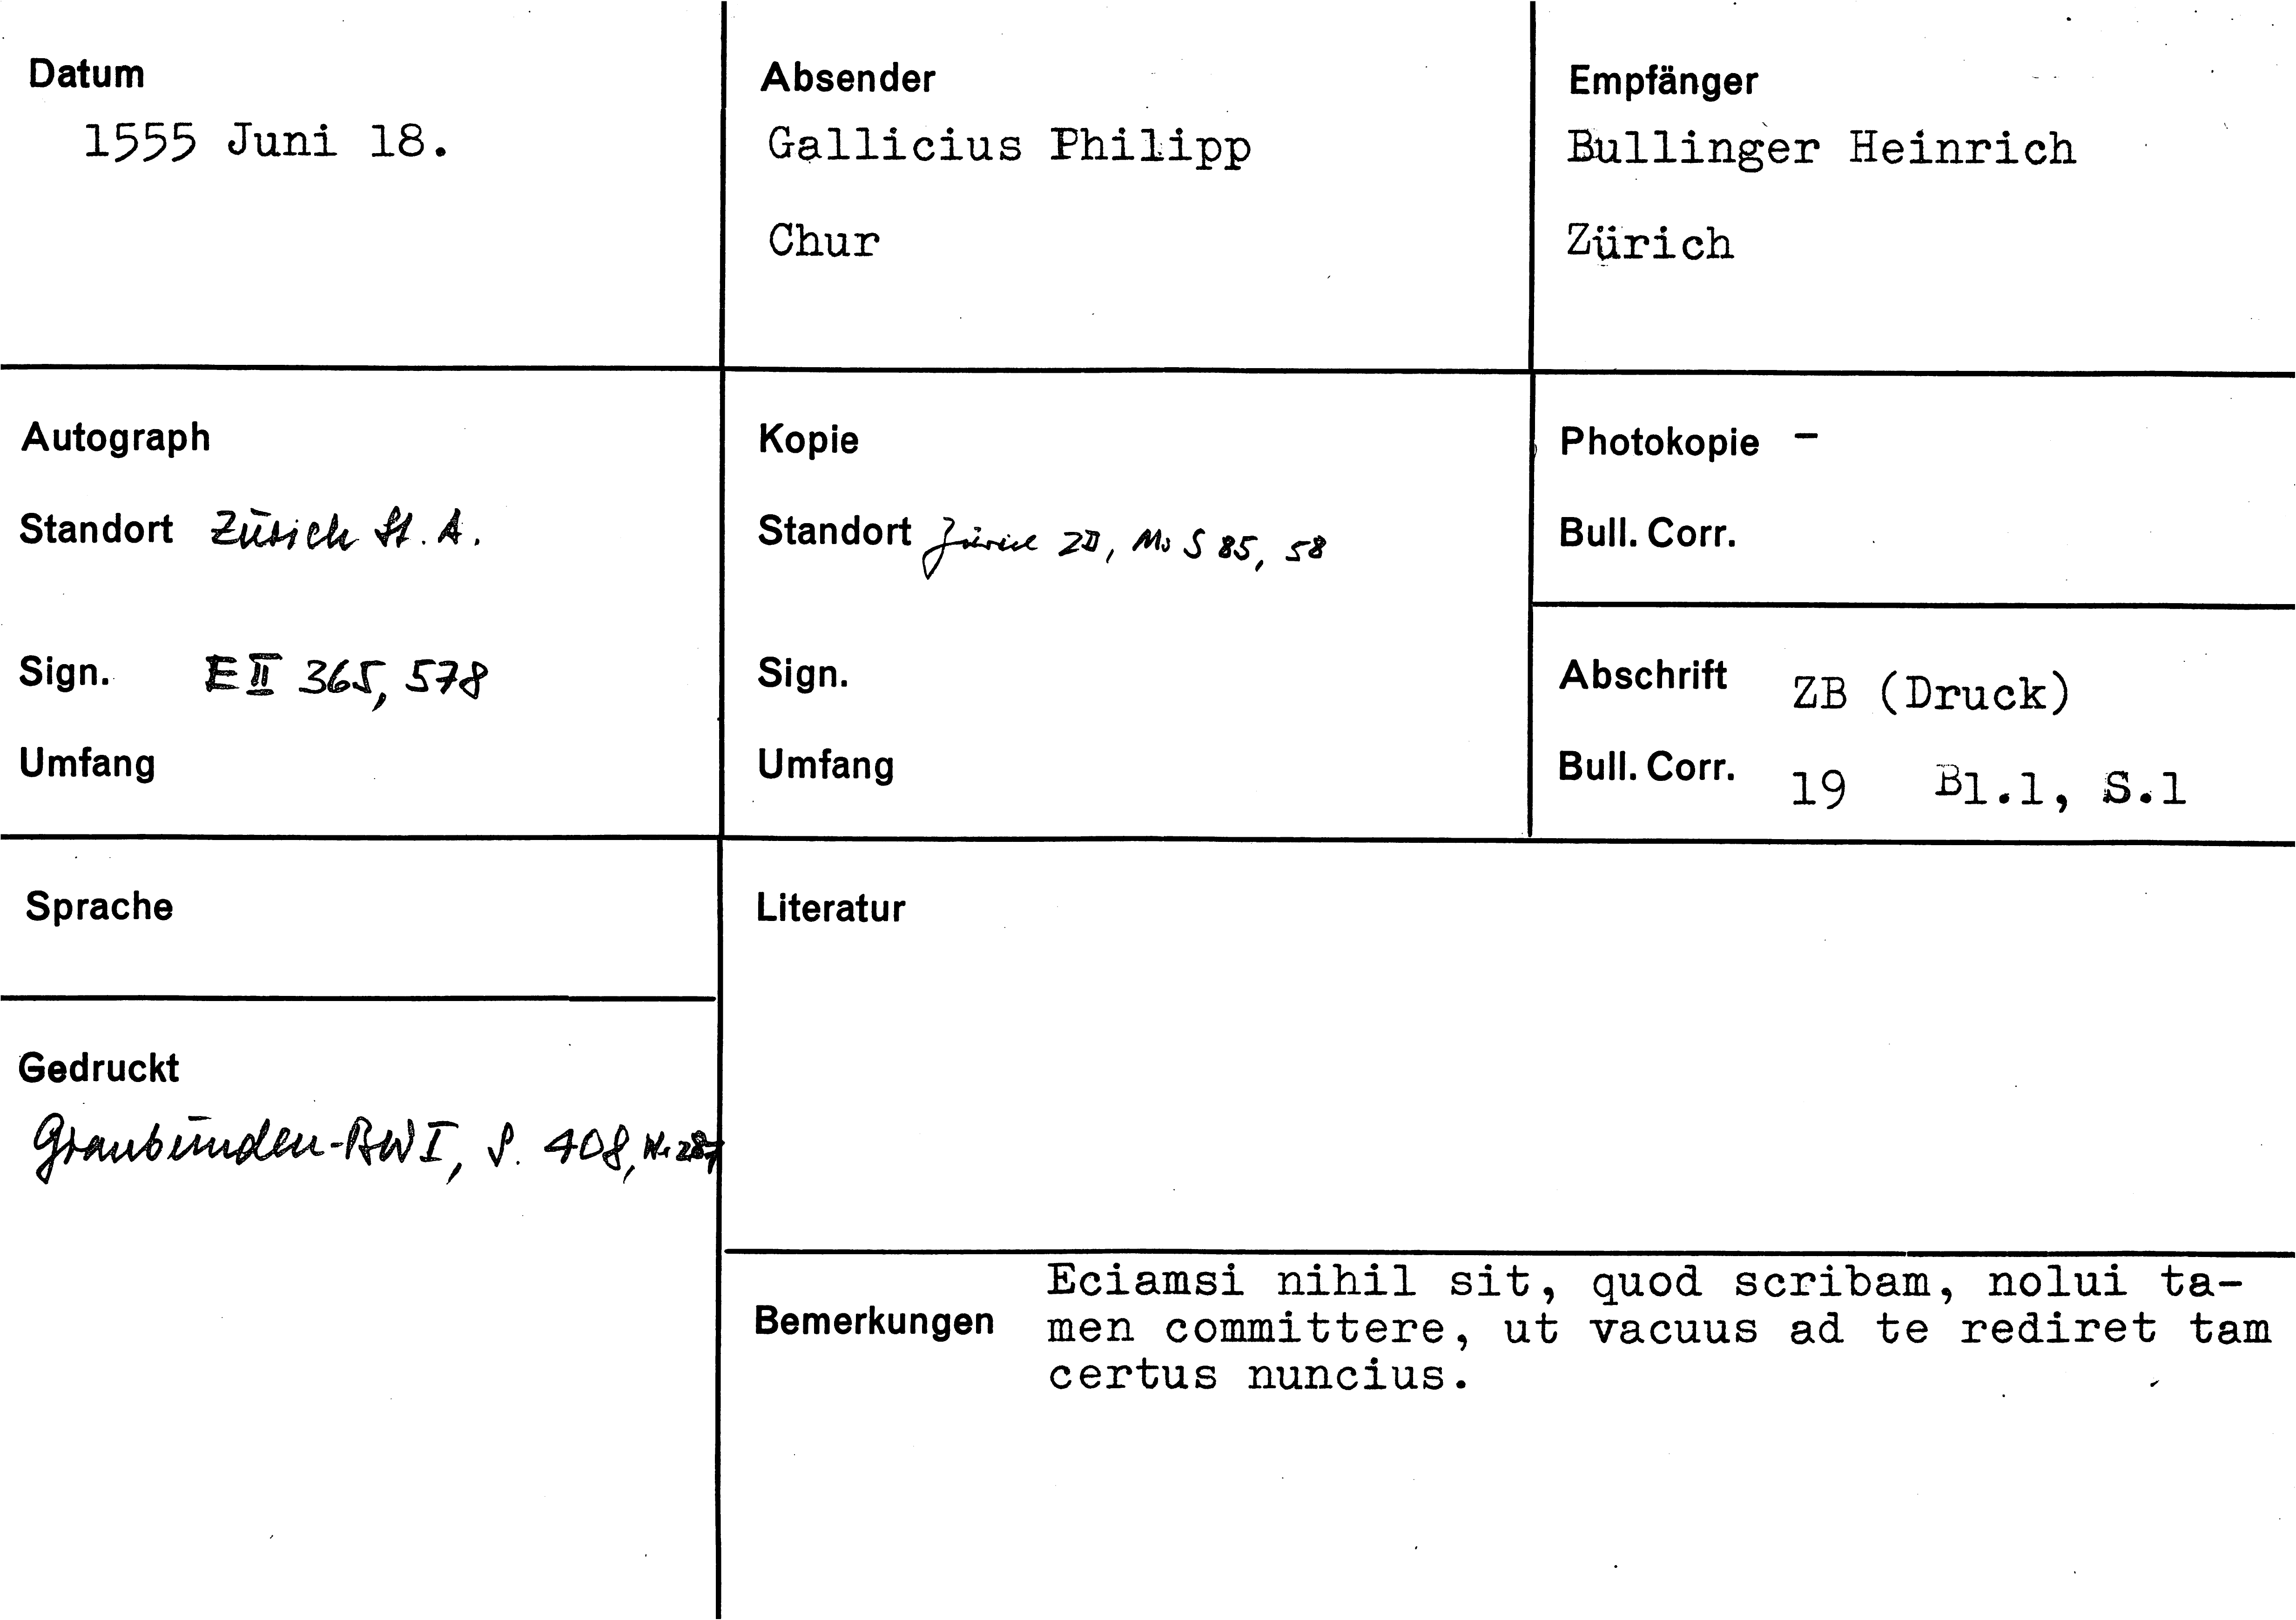 Datum
1555 Juni 18.
Absender
Gallicius Philipp
Chur
Empfänger
Bullinger Heinrich
Zürich
Autograph
Standort Zürich St. A.
Sign. E II 365, 578
Umfang
Kopie
Standort Zürich ZB, Ms S 85, 58
Sign.
Umfang
Photokopie -
Bull. Corr.
Abschrift ZB (Druck)
Bull. Corr. 19 Bl.1, S.1
Sprache
Gedruckt
Graubünden-BW I, S. 408, Nr 287
Literatur
Bemerkungen
Eciamsi nihil sit, quod scribam, nolui ta-
men committere, ut vacuus ad te rediret tam
certus nuncius.